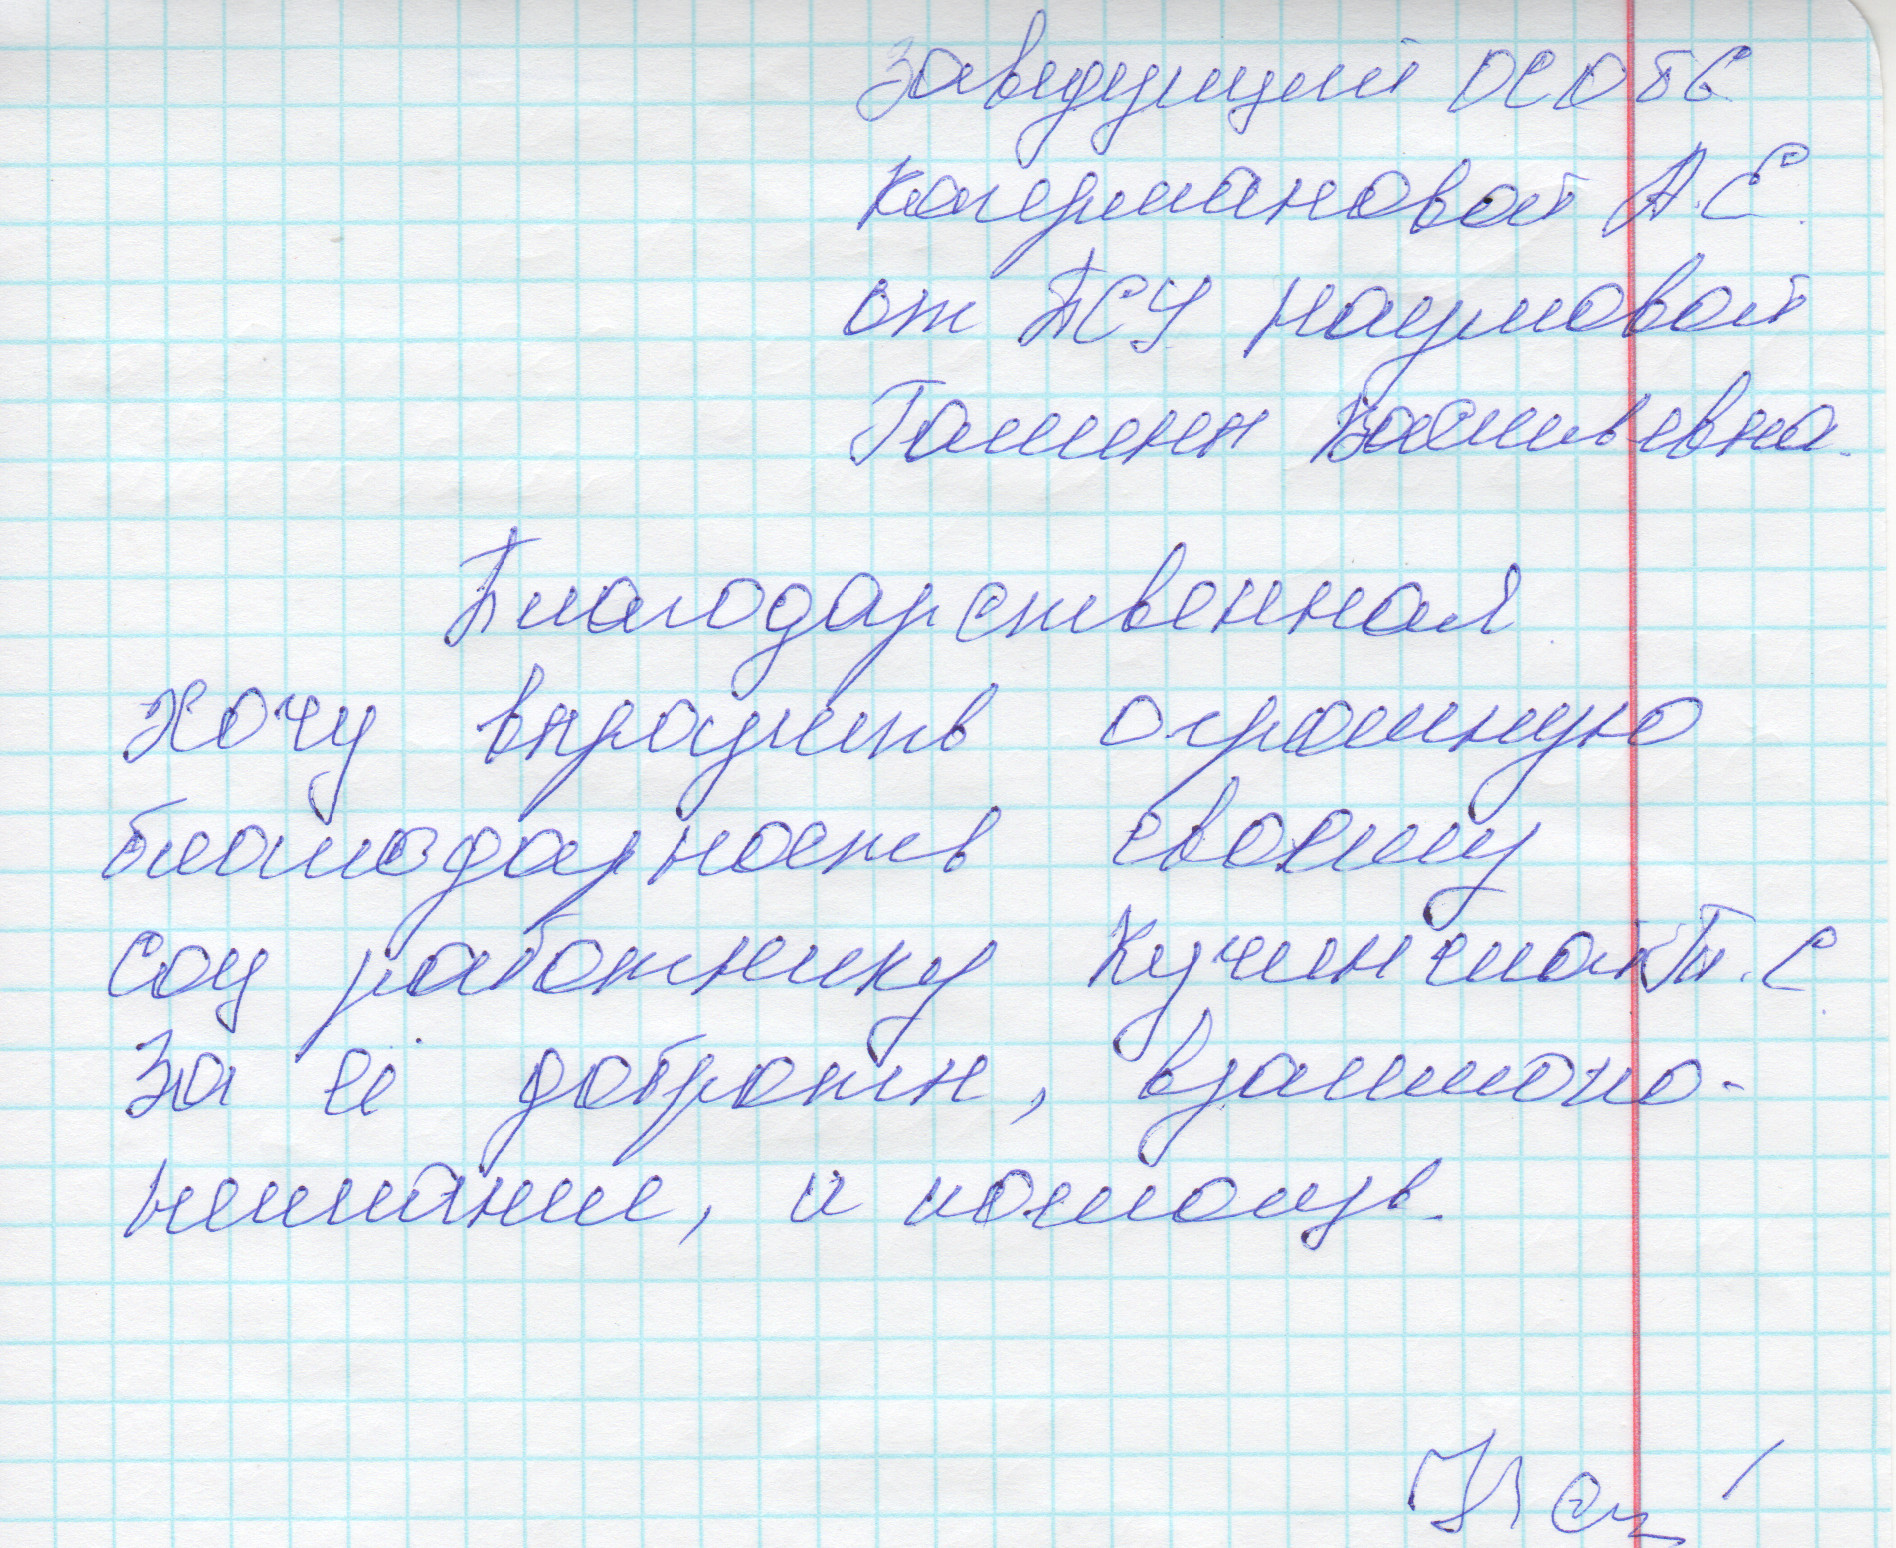 Заведущий ОСОБС
Кагермановой А.Е.
от ПСУ Наумовой
Галины Васильевна.
Благодарственная
Хочу выразить огромную
благодарность своему
соц работнику Т.С
За её доброты, взаимопо-
нимание, и помощь.